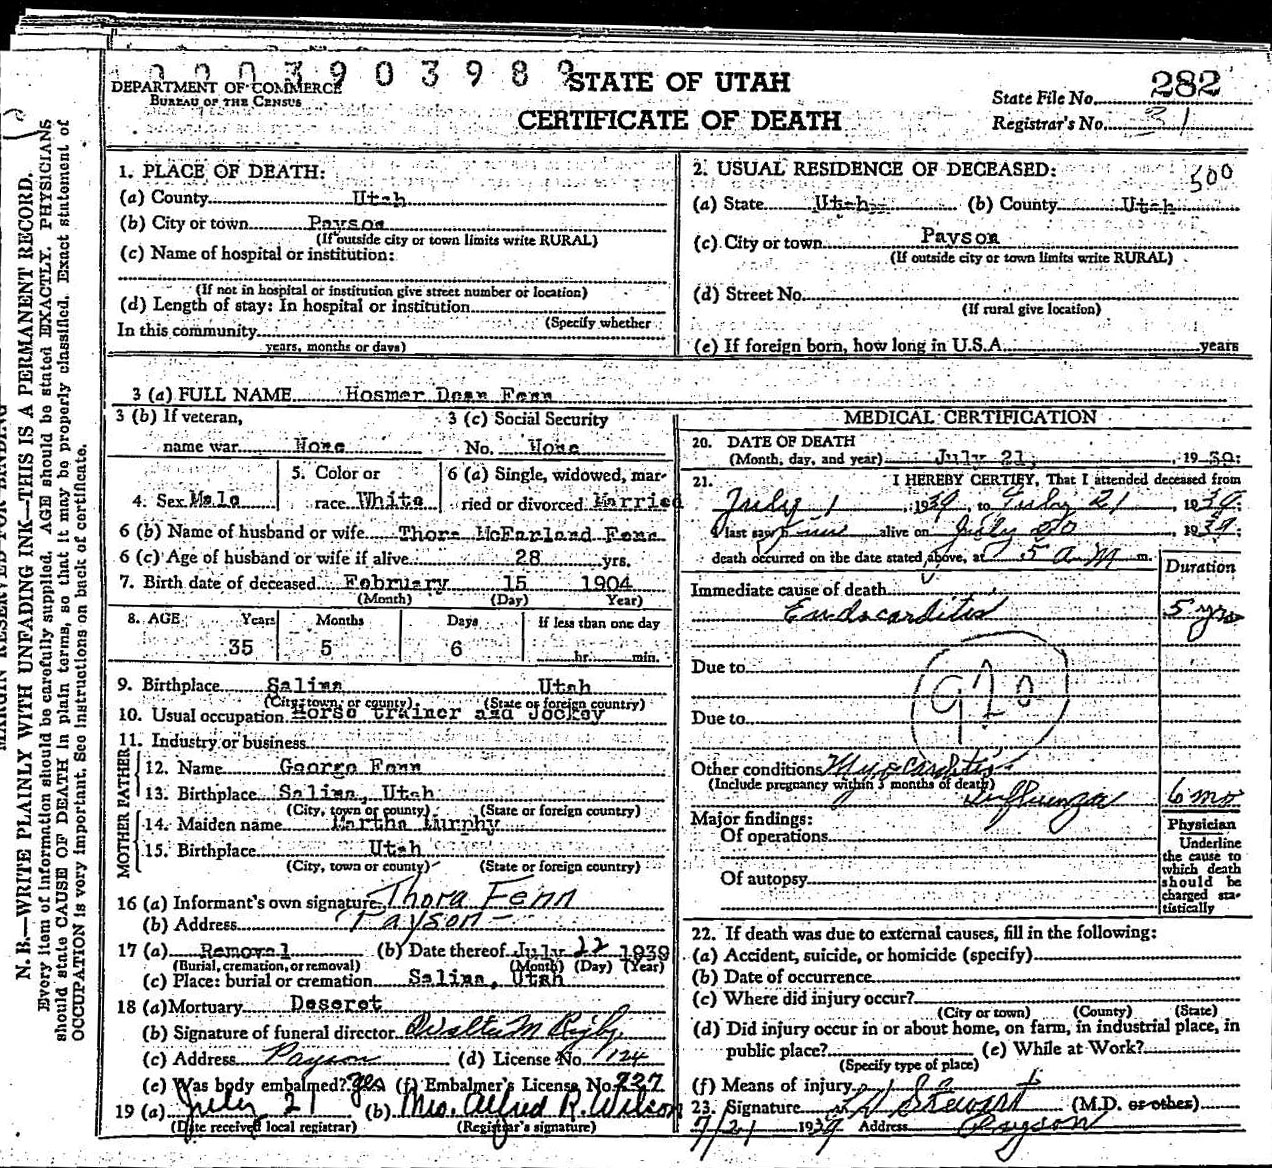 0003903989
DEPARTMENT OF COMMERCE
BUREAU OF THE CENSUS
STATE OF UTAH
CERTIFICATE OF DEATH
State File No. 282
Registrar's No. 31
MARGIN RESERVED FOR BINDING
N. B.—WRITE PLAINLY WITH UNFADING INK—THIS IS A PERMANENT RECORD.
Every item of information should be carefully supplied. AGE should be stated EXACTLY. PHYSICIANS
should state CAUSE OF DEATH in plain terms, so that it may be properly classified. Exact statement of
OCCUPATION is very important. See instructions on back of certificate.
1. PLACE OF DEATH:
(a) County Utah
(b) City or town Payson
(If outside city or town limits write RURAL)
(c) Name of hospital or institution:
(If not in hospital or institution give street number or location)
(d) Length of stay: In hospital or institution
(Specify whether
In this community
years, months or days)
2. USUAL RESIDENCE OF DECEASED: 500
(a) State Utah (b) County Utah
(c) City or town Payson
(If outside city or town limits write RURAL)
(d) Street No.
(If rural give location)
(e) If foreign born, how long in U.S.A. years
3 (a) FULL NAME Hosmer Dean Fenn
3 (b) If veteran, 3 (c) Social Security
name war None No. None
4. Sex Male 5. Color or race White 6 (a) Single, widowed, married or divorced Married
6 (b) Name of husband or wife Thora McFarland Fenn
6 (c) Age of husband or wife if alive 28 yrs.
7. Birth date of deceased February 15 1904
(Month) (Day) Year)
8. AGE Years Months Days If less than one day
35 5 6 hr. min.
9. Birthplace Salina Utah
(City, town, or county) (State or foreign country)
10. Usual occupation Horse trainer and Jockey
11. Industry or business
FATHER
12. Name George Fenn
13. Birthplace Salina, Utah
(City, town or county) (State or foreign country)
MOTHER
14. Maiden name Martha Murphy
15. Birthplace Utah
(City, town or county) (State or foreign country)
16 (a) Informant's own signature Thora Fenn
(b) Address Payson
17 (a) Removal (b) Date thereof July 22 1939
(Burial, cremation, or removal) (Month) (Day) (Year)
(c) Place: burial or cremation Salina, Utah
18 (a) Mortuary Deseret
(b) Signature of funeral director Walter M Rigby
(c) Address Payson (d) License No. 124
(e) Was body embalmed? Yes (f) Embalmer's License No. 227
19 (a) July 21 (b) Mrs. Alfred R. Wilson
(Date received local registrar) (Registrar's signature)
MEDICAL CERTIFICATION
20. DATE OF DEATH
(Month, day, and year) July 21, 1939.
21. I HEREBY CERTIFY, That I attended deceased from
July 1 1939, to July 21, 1939.
I last saw him alive on July 20 1939.
death occurred on the date stated above, at 5 a m m.
Duration
Immediate cause of death
Endocarditis 5 yrs
Due to
920
Due to
Other conditions Myocarditis
(Include pregnancy within 3 months of death)
Influenza 6 mo
Major findings:
Of operations
Of autopsy
Physician
Underline
the cause to
which death
should be
charged sta-
tistically
22. If death was due to external causes, fill in the following:
(a) Accident, suicide, or homicide (specify)
(b) Date of occurrence
(c) Where did injury occur?
(City or town) (County) (State)
(d) Did injury occur in or about home, on farm, in industrial place, in
public place? (e) While at Work?
(Specify type of place)
(f) Means of injury
23. Signature Stewart (M.D. or other)
7/21 1939 Address Payson